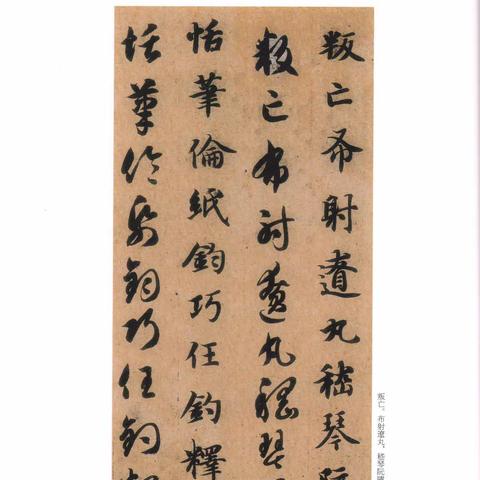 叛亡布射遼丸嵇琴阮
叛亡布射遼丸嵇琴
恬筆倫紙鈞巧任釣釋
恬筆倫紙鈞巧任釣
叛亡。布射遼丸，嵇琴阮